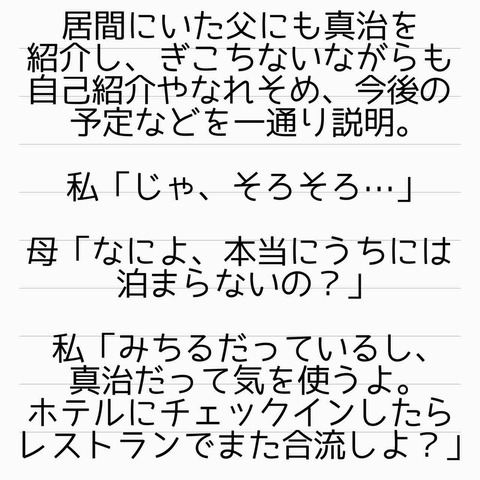 居間にいた父にも真治を
紹介し、ぎこちないながらも
自己紹介やなれそめ、今後の
予定などを一通り説明。
私「じゃ、そろそろ…」
母「なによ、本当にうちには
泊まらないの？」
私「みちるだっているし、
真治だって気を使うよ。
ホテルにチェックインしたら
レストランでまた合流しよ？」